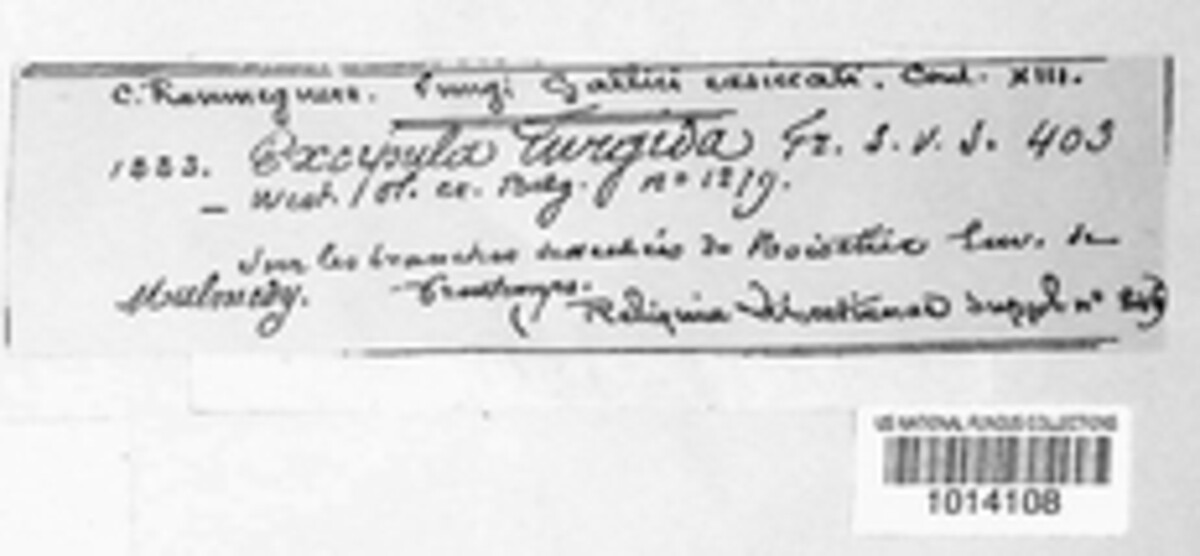 C. Roumeguère. Fungi Gallici exsiccati. Cent. XIII.
1283. Excipula Turgida Fr. S. V. S. 403
— West. / Belg. nº 1219.
Sur les branches de Noisetier Env. de
Malmedy.
Reliquiae Libertianae Suppl. nº
US NATIONAL FUNGUS COLLECTIONS
1014108